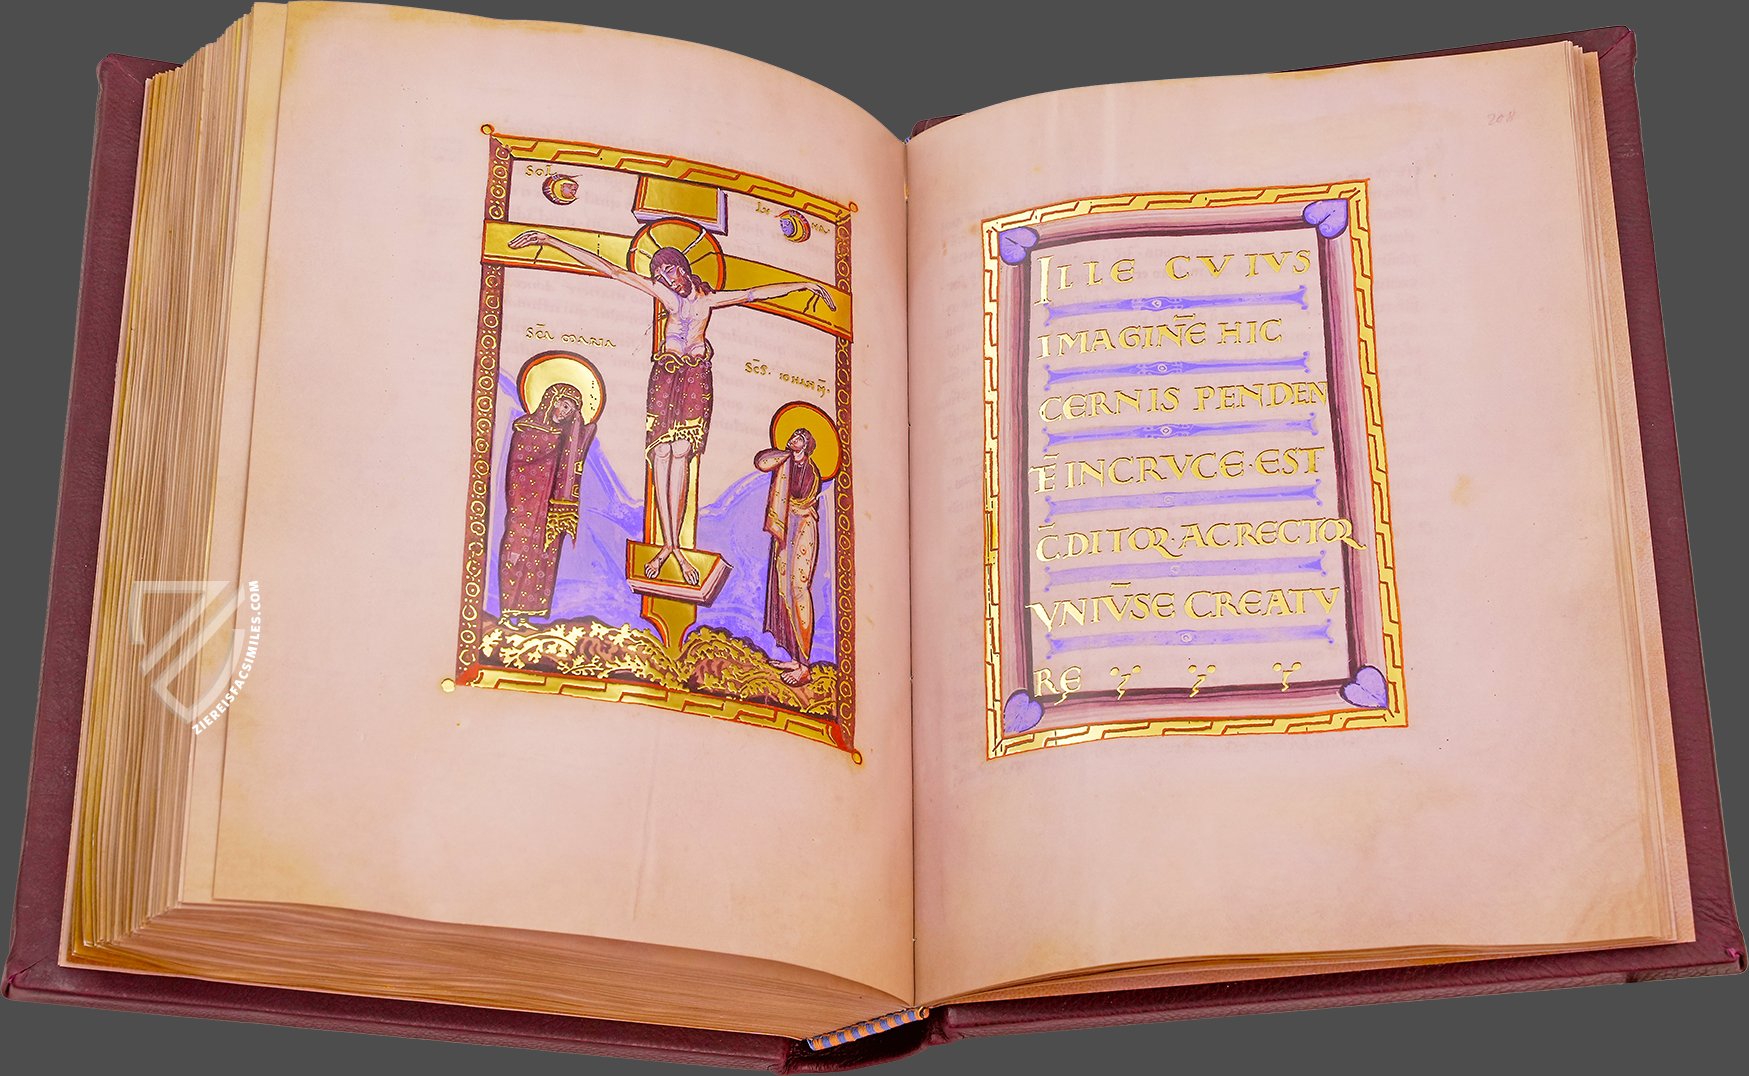 SOL
LV NA
SCA MARIA
SCS· IOHANN̄·
208
ILLE CVIVS
IMAGINĒ HIC
CERNIS PENDEN
Ē INCRVCE·EST
C̄DITOR·ACRECTOR
VNIV̄SE CREATV
RĘ
ZIEREISFACSIMILES.COM